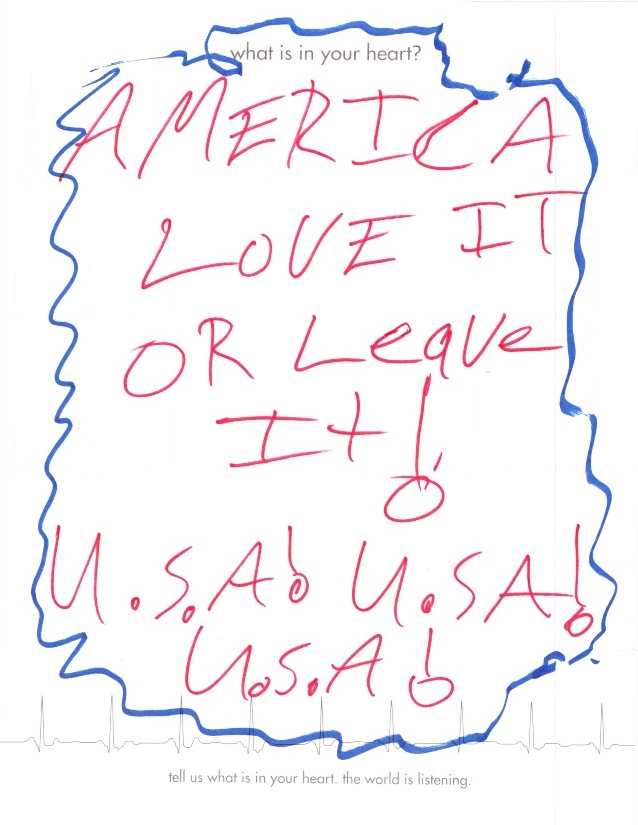 what is in your heart?
AMERICA
LOVE IT
OR Leave
It!
U.S.A! U.SA!
U.S.A!
tell us what is in your heart. the world is listening.